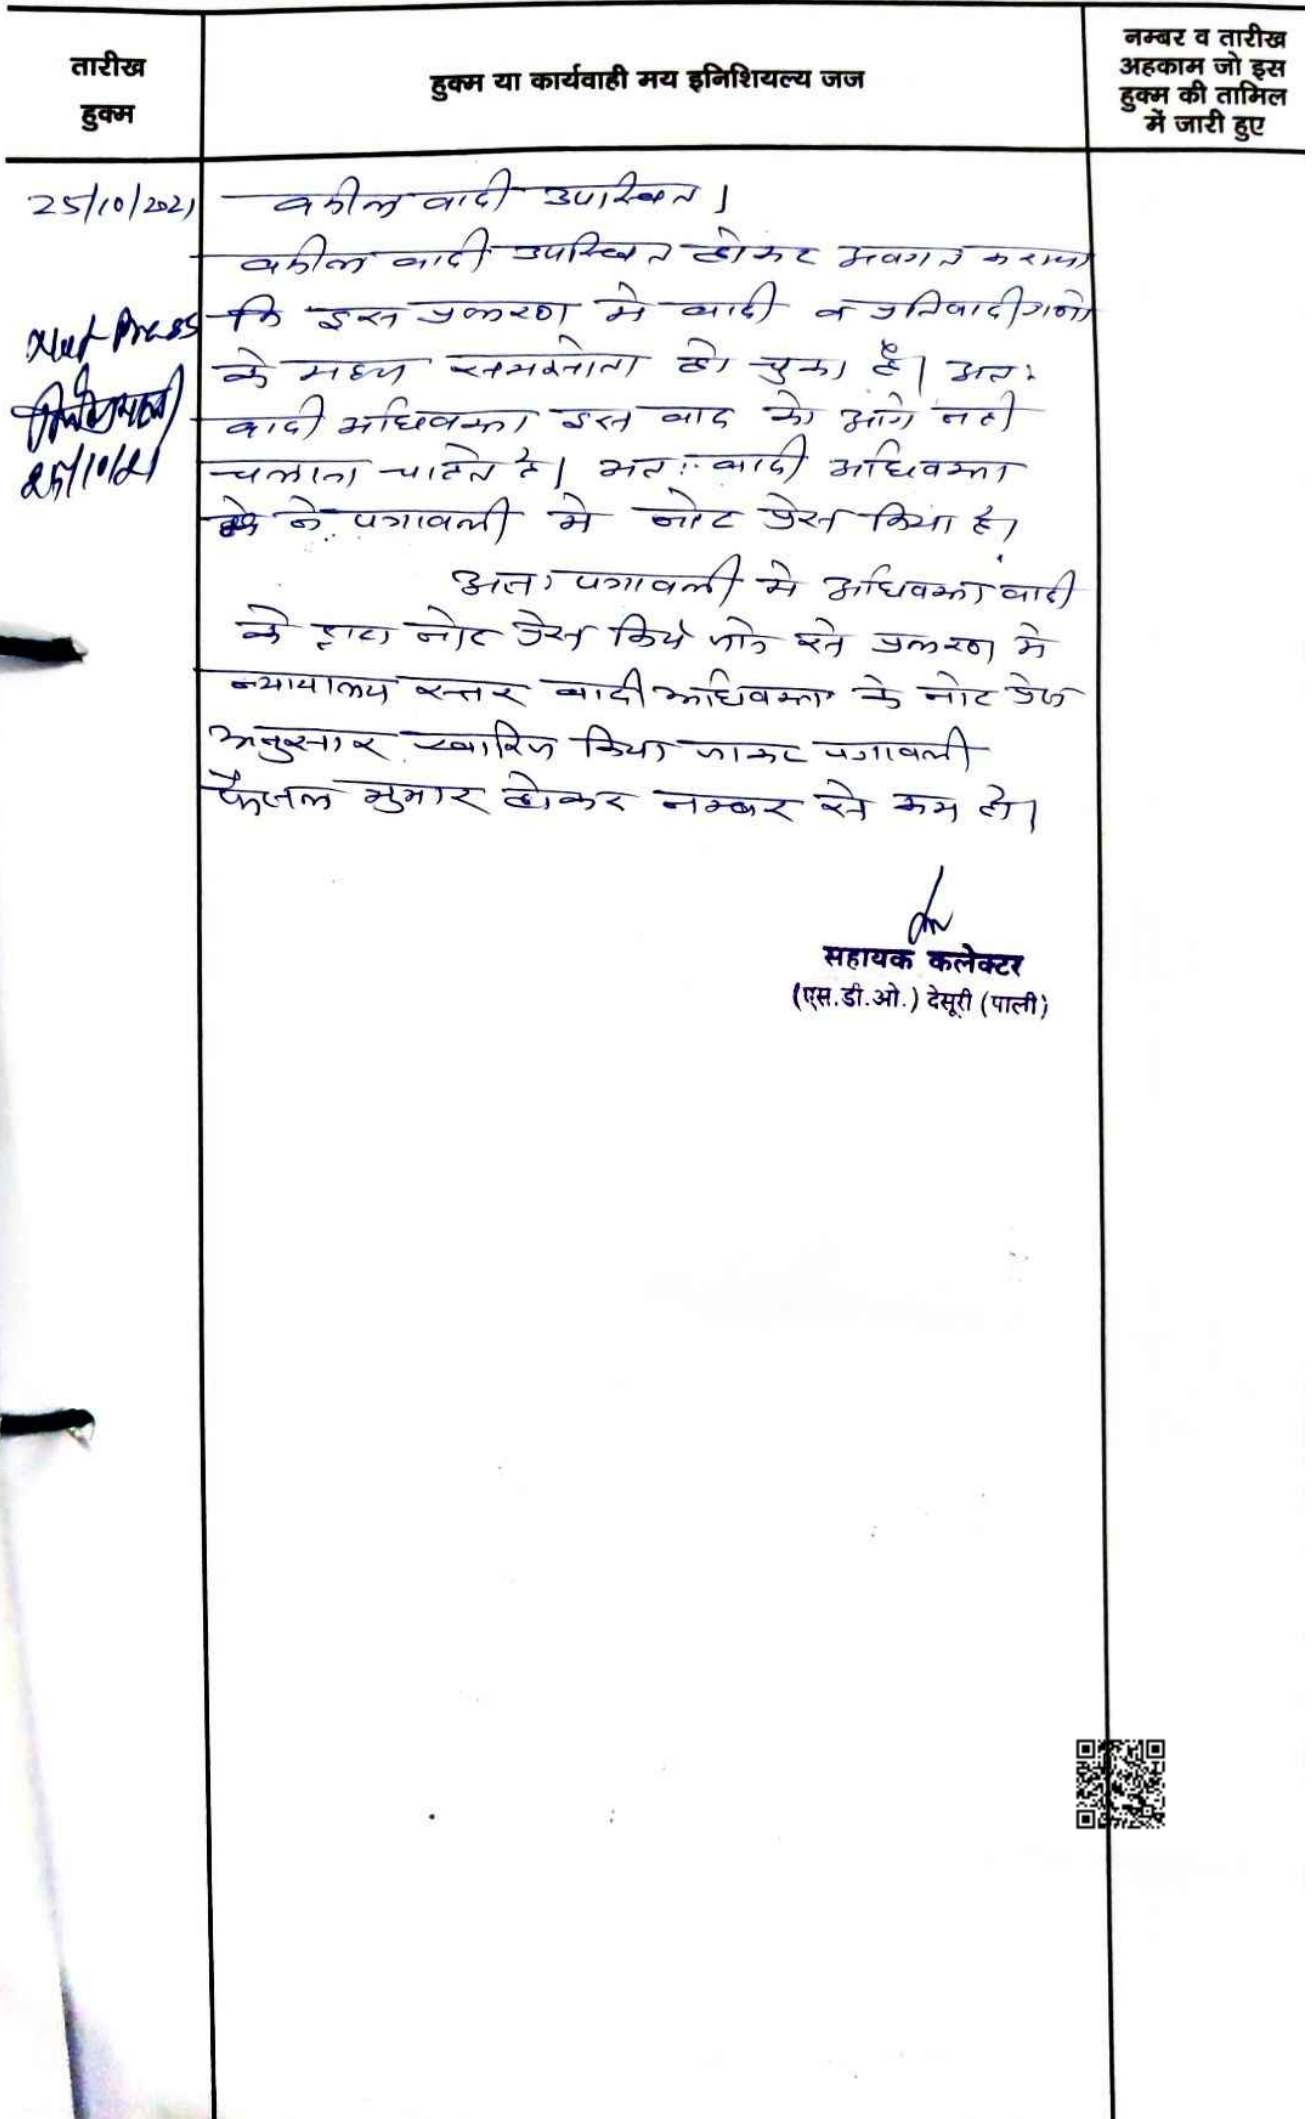 तारीख
हुक्म
हुक्म या कार्यवाही मय इनिशियल्य जज
नम्बर व तारीख
अहकाम जो इस
हुक्म की तामिल
में जारी हुए
25/10/2021
वकील वादी उपस्थित।
वकील वादी उपस्थित होकर अवगत कराया
कि इस प्रकरण मे वादी व प्रतिवादीगणो
के मध्य समझोता हो चुका है। अतः
वादी अधिवक्ता इस वाद को आगे नही
चलाना चाहते है। अतः वादी अधिवक्ता
ने पत्रावली मे नोट प्रेस किया है।
अतः पत्रावली मे अधिवक्ता वादी
के द्वारा नोट प्रेस किये जाने से प्रकरण मे
न्यायालय स्तर वादी अधिवक्ता के नोट प्रेस
अनुसार खारिज किया जाकर पत्रावली
फैसल सुमार होकर नम्बर से कम हो।
Not Press
25/10/21
सहायक कलेक्टर
(एस.डी.ओ.) देसूरी (पाली)